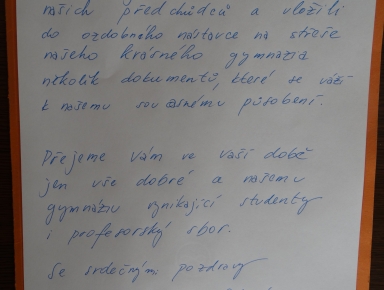 našich předchůdců a vložili
do ozdobného nástavce na střeše
našeho krásného gymnázia
několik dokumentů, které se váží
k našemu současnému působení.
Přejeme Vám ve Vaší době
jen vše dobré a našemu
gymnáziu vynikající studenty
i profesorský sbor.
Se srdečnými pozdravy